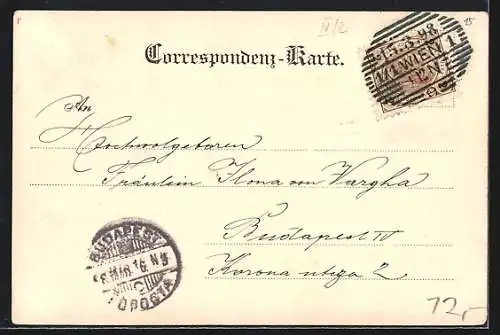 IV/2
15
Correspondenz-Karte.
15.3.98
1/1 WIEN 1
An
Hochwolgeboren
Fräulein Ilona von Vargha
Budapest IV
Korona utcza 2
BUDAPEST
FŐPOSTA
72,-